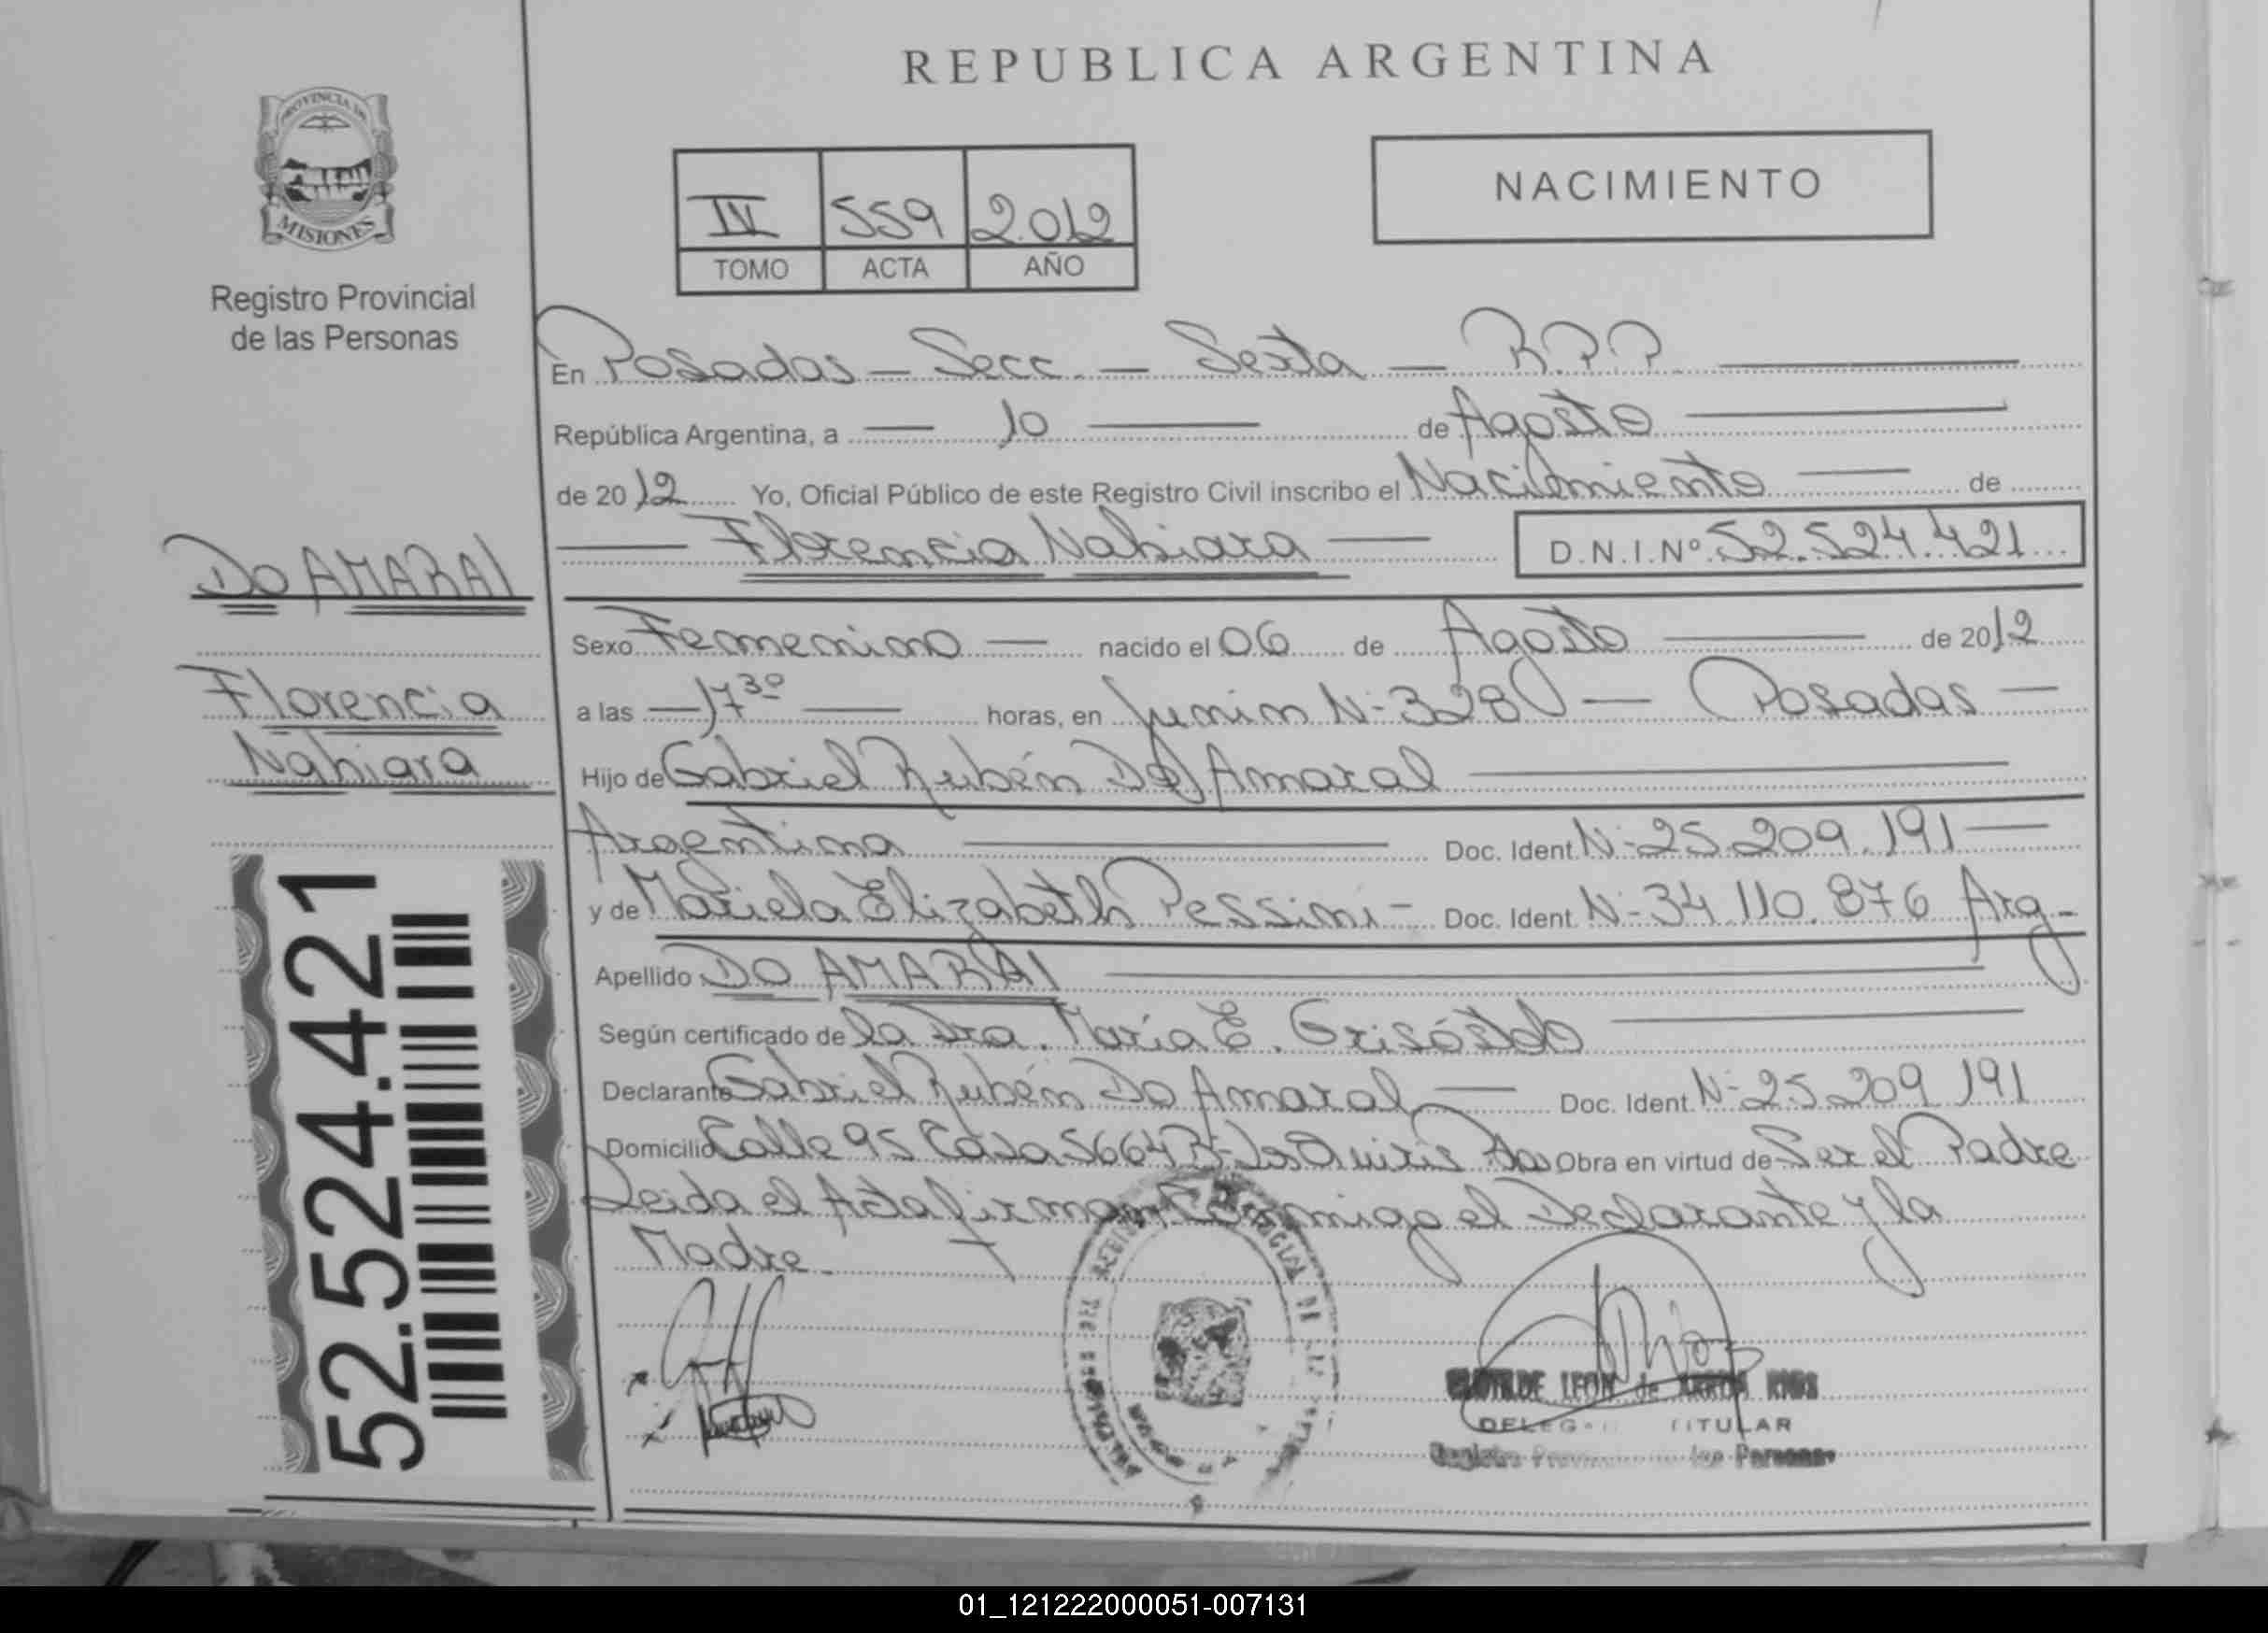 REPUBLICA ARGENTINA
PROVINCIA DE
MISIONES
Registro Provincial
de las Personas
NACIMIENTO
IV 559 2.012
TOMO ACTA AÑO
En Posadas - Secc. - Sexta - R.P.P.
República Argentina, a - 10 - de Agosto
de 2012 Yo, Oficial Público de este Registro Civil inscribo el Nacimiento - de
Florencia Nahiara - D.N.I.Nº 52.524.421
DO AMARAL
Florencia
Nahiara
Sexo Femenino - nacido el 06 de Agosto de 2012
a las - 17 30 - horas, en Junin N- 3280 - Posadas -
Hijo de Gabriel Rubén Do Amaral
Argentina Doc. Ident. N- 25.209.191 -
y de Mariela Elizabeth Pessini - Doc. Ident. N- 34.110.876 Arg-
Apellido DO AMARAL
Según certificado de la Dra. María E. Grisósto
Declarante Gabriel Rubén Do Amaral - Doc. Ident. N- 25.209.191
Domicilio Calle 95 Casa 5664 Obra en virtud de Ser el Padre
Leida el Acta firman Conmigo el Declarante y la
Madre.
52.524.421
LEON de RIOS
TITULAR
las Personas
01_121222000051-007131